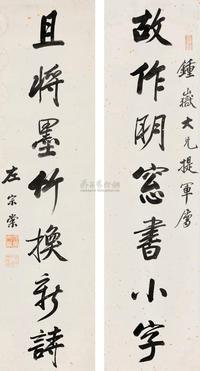 鍾嶽大兄提軍屬
故作明窓書小字
且將墨竹換新詩
左宗棠